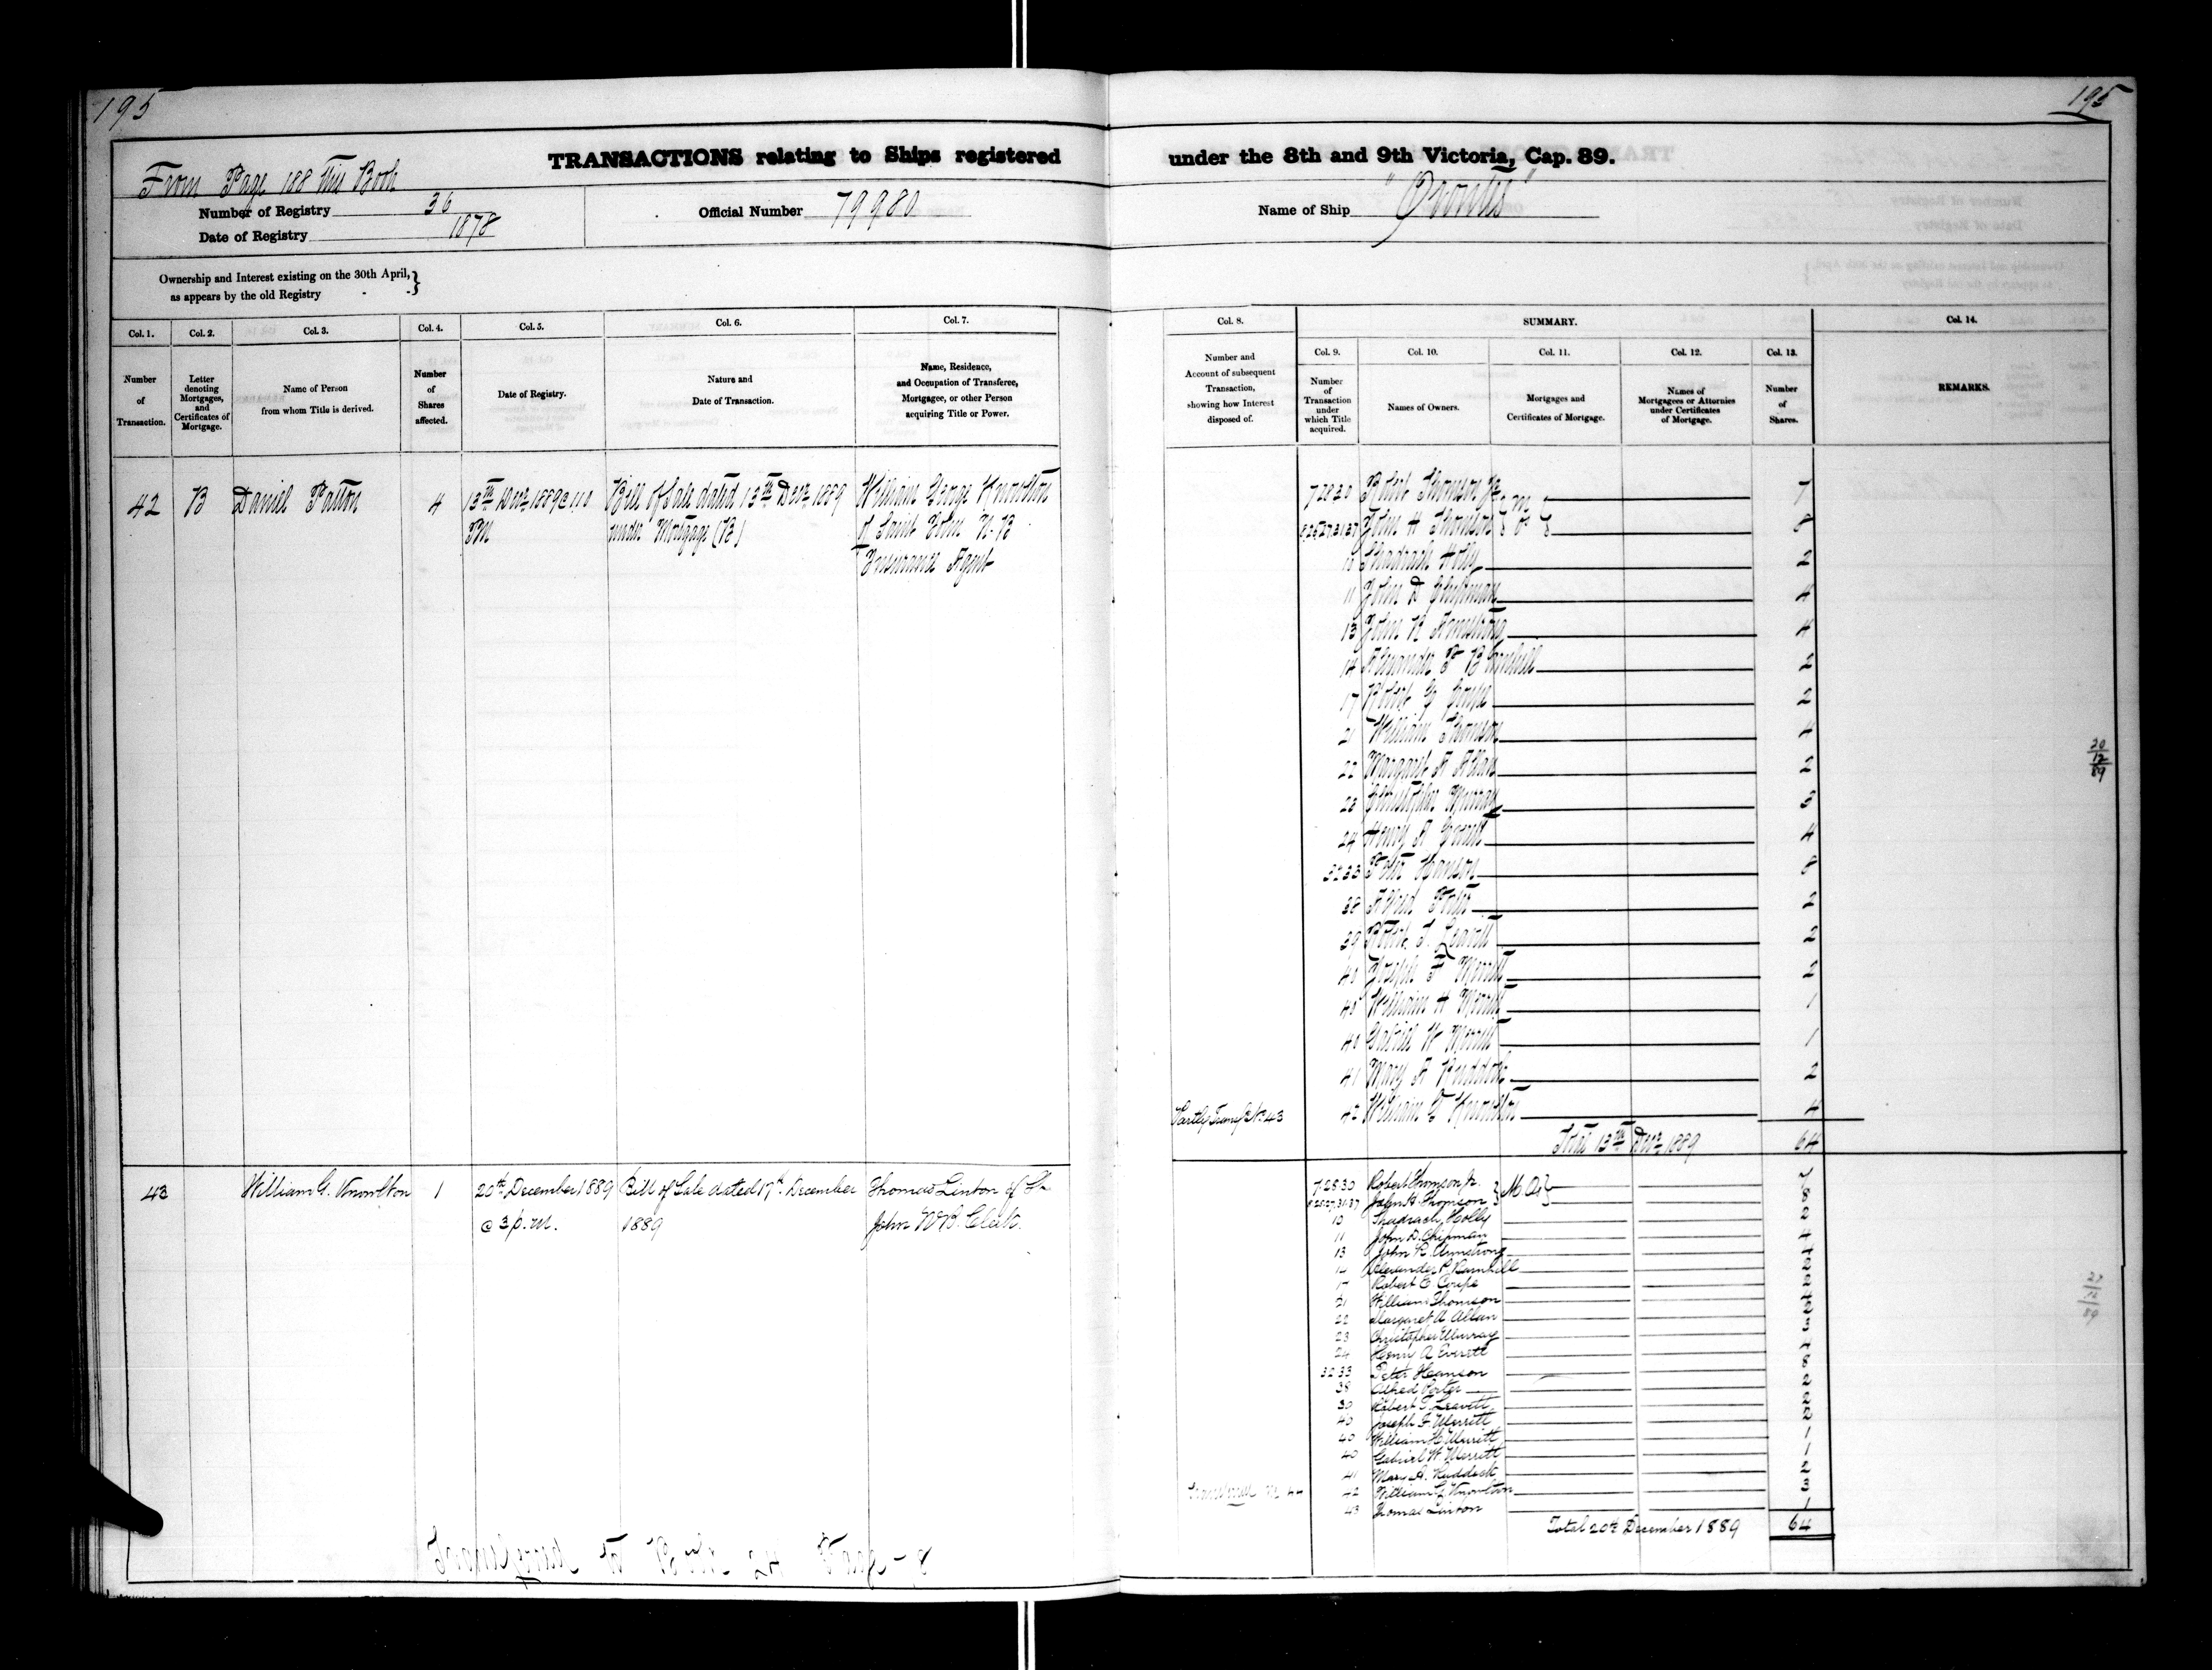 195
195
TRANSACTIONS relating to Ships registered under the 8th and 9th Victoria, Cap. 89.
From Page 188 this Book
Number of Registry 36
Date of Registry 1878
Official Number 79980
Name of Ship "Orontes"
Ownership and Interest existing on the 30th April, }
as appears by the old Registry
Col. 1. Col. 2. Col. 3. Col. 4. Col. 5. Col. 6. Col. 7.
Number of Transaction.
Letter denoting Mortgages, and Certificates of Mortgage.
Name of Person from whom Title is derived.
Number of Shares affected.
Date of Registry.
Nature and Date of Transaction.
Name, Residence, and Occupation of Transferee, Mortgagee, or other Person acquiring Title or Power.
Col. 8. SUMMARY. Col. 14.
Col. 9. Col. 10. Col. 11. Col. 12. Col. 13.
Number and Account of subsequent Transaction, showing how Interest disposed of.
Number of Transaction under which Title acquired.
Names of Owners.
Mortgages and Certificates of Mortgage.
Names of Mortgagees or Attornies under Certificates of Mortgage.
Number of Shares.
REMARKS.
42 B Daniel Patton 4 13th Decr 1889 @ 1 10 Bill of Sale dated 13th Decr 1889 William George Knowlton
PM under Mortgage (B) of Saint John N.B
Insurance Agent
7 28 30 Robert Thomson Jr 7
John H Thomson 8
10 Shadrach Holly 2
11 John D Chipman 4
13 John R Armstrong 4
14 Alexander P Barnhill 2
17 Robert G Coupe 2
21 William Thomson 4
22 Margaret A Allan 2
23 Christopher Murray 3
24 Henry A Everett 4
32 33 Peter Hanson 8
38 Alfred Porter 2
39 Robert T. Leavitt 2
40 Joseph F Merritt 2
40 William H Merritt 1
40 Gabriel W Merritt 1
41 Mary A Ruddock 2
Partly Transf. No. 43 42 William G Knowlton 4
Total 13th Decr 1889 64
20/12/89
43 William G. Knowlton 1 20th December 1889 Bill of Sale dated 17th December Thomas Linton of St.
@ 3 p.m. 1889 John N.B. Clerk.
7.28.30 Robert Thomson Jr. } M.O. } 7
John H. Thomson 8
10 Shadrach Holly 2
11 John D. Chipman 4
13 John R. Armstrong 4
14 Alexander P. Barnhill 2
17 Robert G Coupe 2
21 William Thomson 4
22 Margaret A Allan 2
23 Christopher Murray 3
24 Henry A Everett 4
32 33 Peter Hanson 8
38 Alfred Porter 2
39 Robert T. Leavitt 2
40 Joseph F Merritt 2
40 William H Merritt 1
40 Gabriel W Merritt 1
41 Mary A. Ruddock 2
42 William G. Knowlton 3
43 Thomas Linton 1
Total 20th December 1889 64